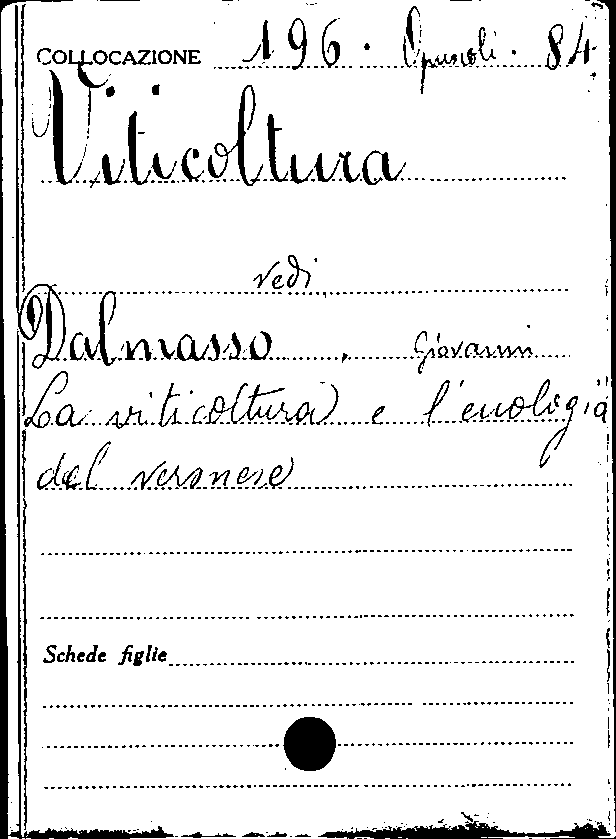 COLLOCAZIONE 196. Opuscoli. 84.
Viticoltura
vedi
Dalmasso, Giovanni
La viticoltura e l'enologia
del veronese
Schede figlie